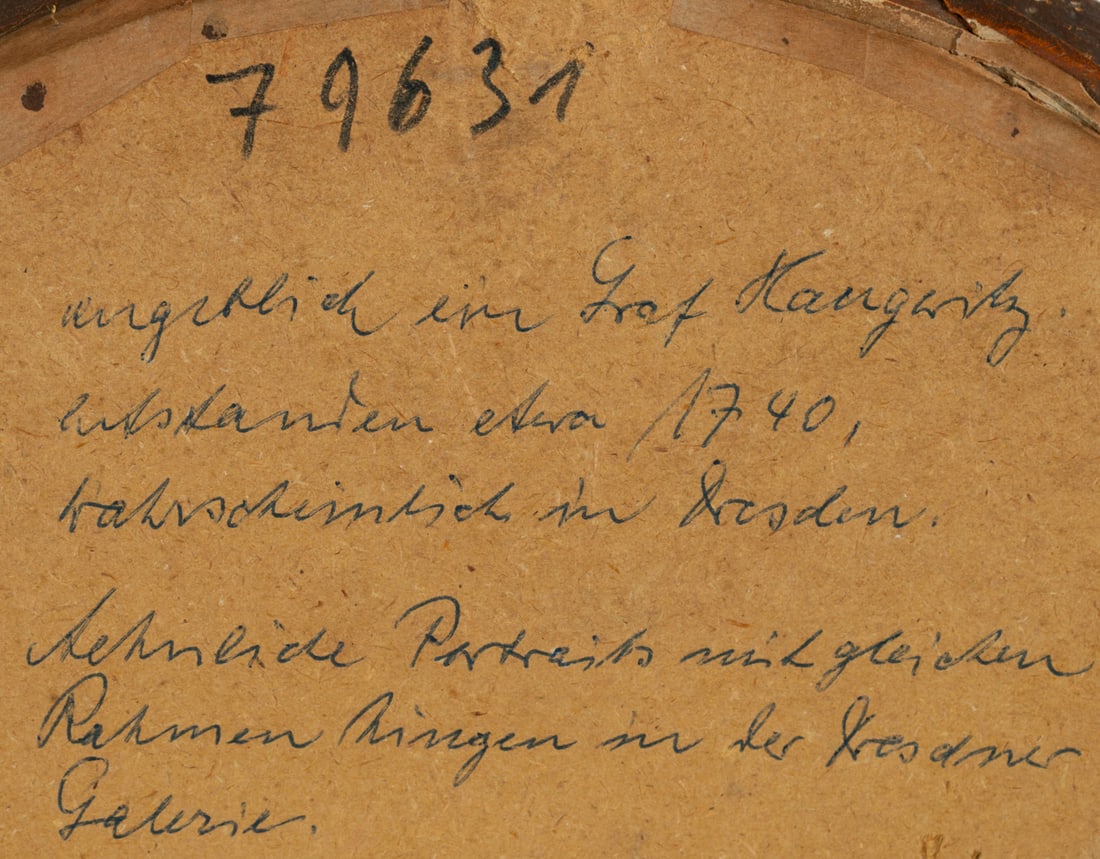 79631
angeblich ein Graf Haugwitz.
entstanden etwa 1740,
wahrscheinlich in Dresden.
Aehnliche Portraits mit gleichen
Rahmen hingen in der Dresdner
Galerie.